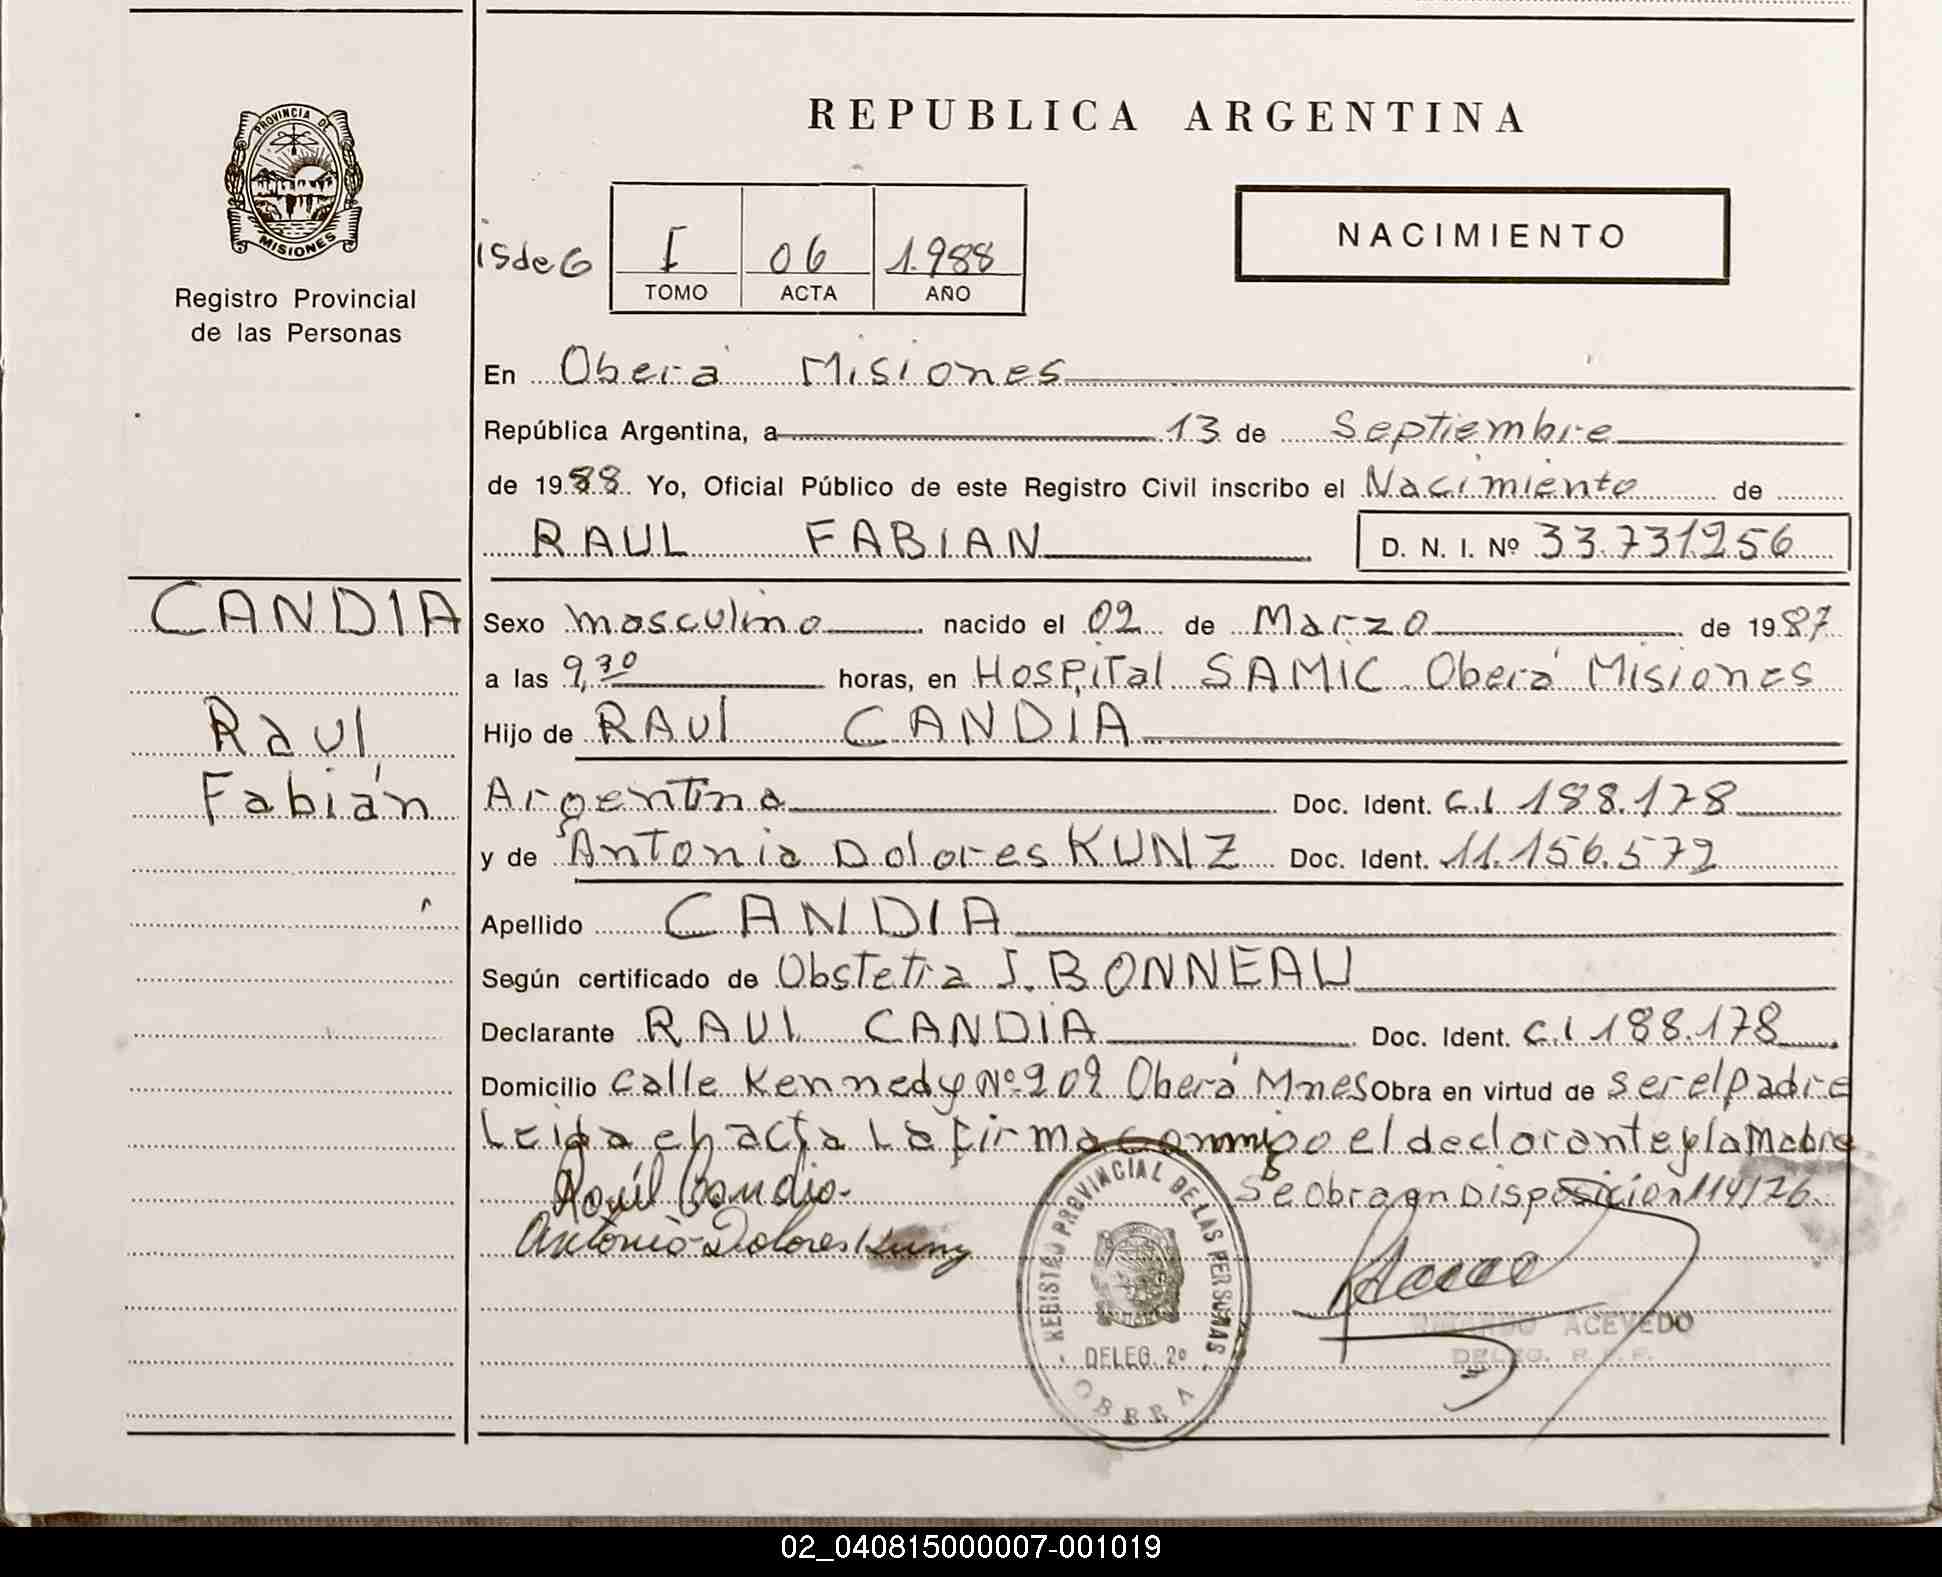 REPUBLICA ARGENTINA
PROVINCIA DE
MISIONES
Registro Provincial
de las Personas
isde6
I 06 1.988
TOMO ACTA AÑO
NACIMIENTO
En Oberá Misiones
República Argentina, a 13 de Septiembre
de 1988. Yo, Oficial Público de este Registro Civil inscribo el Nacimiento de
RAUL FABIAN D. N. I. Nº 33.731.256
CANDIA
Raul
Fabián
Sexo masculino nacido el 02 de Marzo de 1987
a las 9,30 horas, en Hospital SAMIC Oberá Misiones
Hijo de RAUL CANDIA
Argentina Doc. Ident. C.I 188.178
y de Antonia Dolores KUNZ Doc. Ident. 11.156.572
Apellido CANDIA
Según certificado de Obstetra J. BONNEAU
Declarante RAUL CANDIA Doc. Ident. C.I 188.178
Domicilio calle Kennedy Nº 202 Oberá Mnes Obra en virtud de ser el padre
Leida el acta La firma conmigo el declarante y la Madre
Raúl Candia.
Se obra en Disposicion 114/76
Antonia Dolores Kunz
REGISTRO PROVINCIAL DE LAS PERSONAS
DELEG. 2º
OBERA
ACEVEDO
DELEG. R. P. P.
02_040815000007-001019